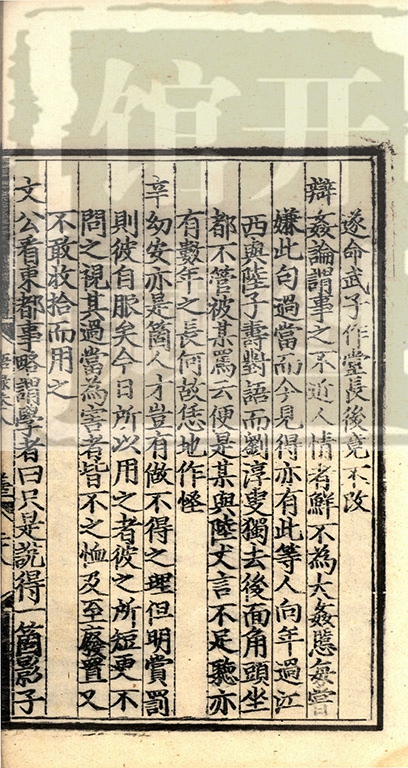 遂命武子作堂長後竟不改
辯姦論謂事之不近人情者鮮不為大姦慝每嘗
嫌此句過當而今見得亦有此等人向年過江
西與陸子壽對語而劉淳叟獨去後面角頭坐
都不管被某罵云便是某與陸丈言不足聽亦
有數年之長何故恁地作怪
辛幼安亦是箇人才豈有做不得之理但明賞罰
則彼自服矣今日所以用之者彼之所短更不
問之視其過當為害者皆不之恤及至廢置又
不敢收拾而用之
文公看東都事略謂學者曰只是說得一箇影子